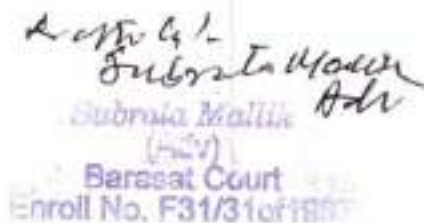 Drafted by
Subrata Mallik
Adv
Subrata Mallik
(Adv)
Barasat Court
Enroll No. F31/31of